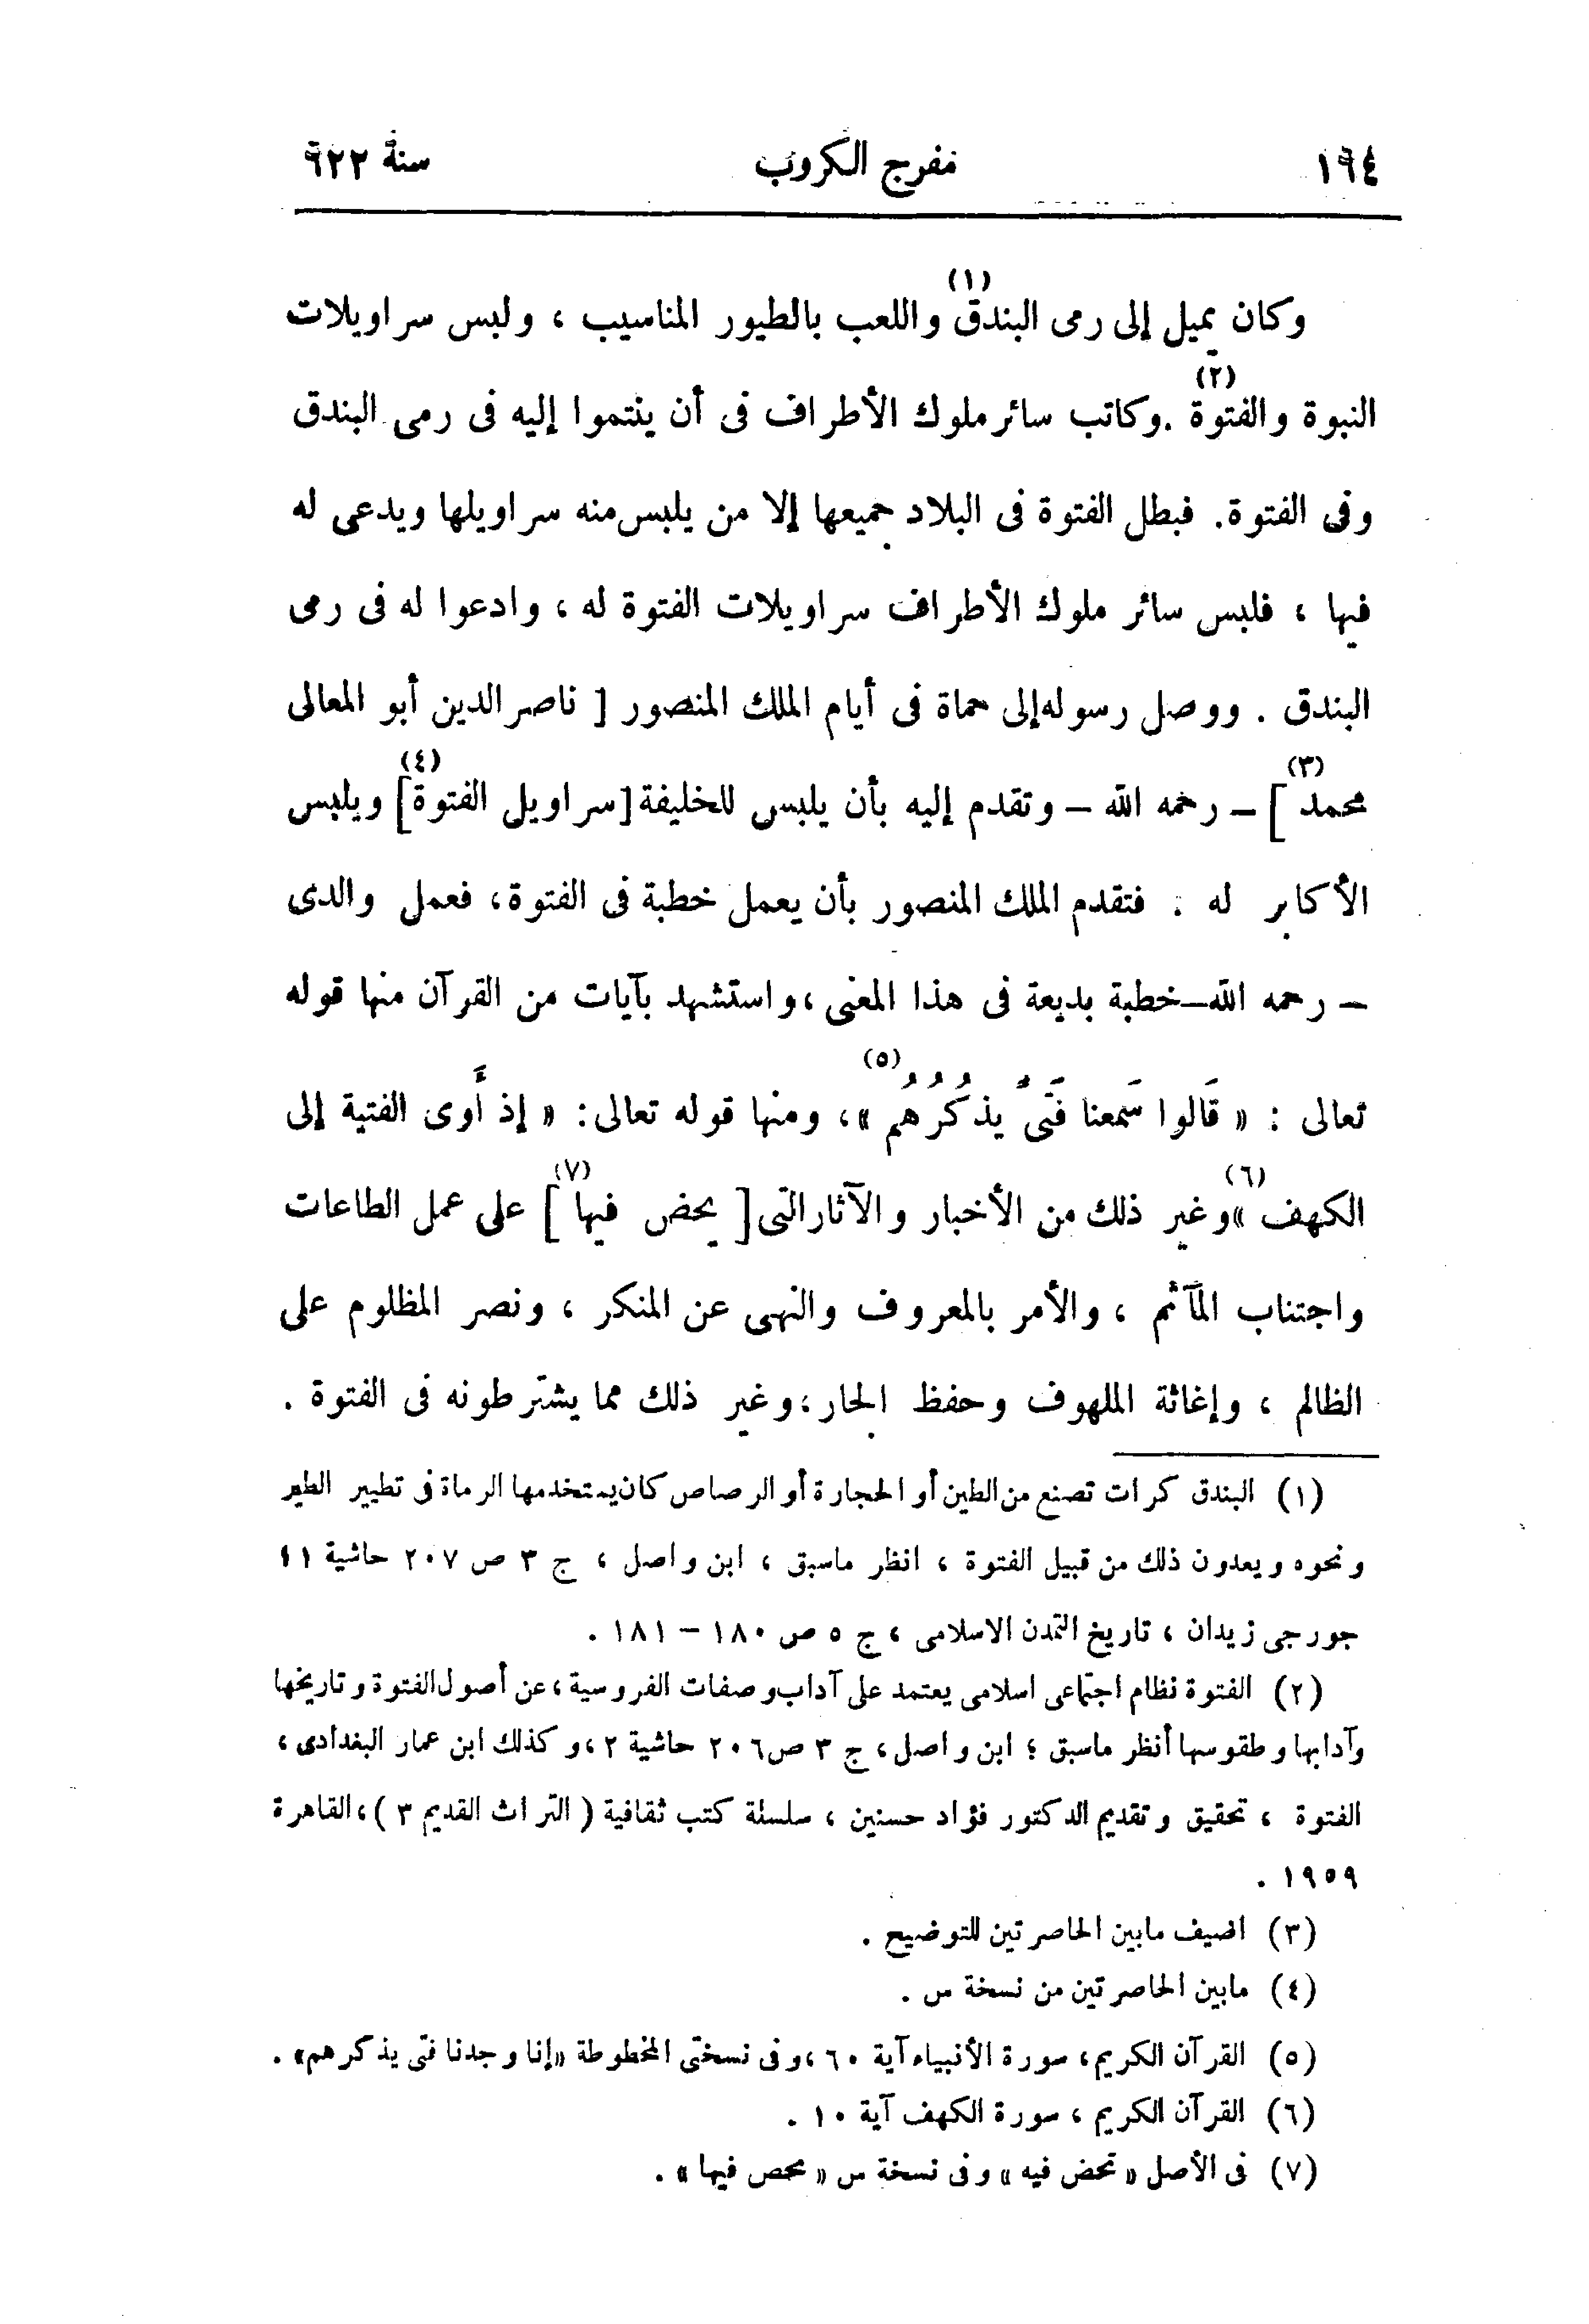 ١٦٤ مفرج الكروب سنة ٦٢٢
وكان يميل إلى رمى البندق(١) واللعب بالطيور المناسيب ، ولبس سراويلات
النبوة والفتوة(٢) . وكاتب سائر ملوك الأطراف فى أن ينتموا إليه فى رمى البندق
وفى الفتوة . فبطل الفتوة فى البلاد جميعها إلا من يلبس منه سراويلها ويدعى له
فيها ، فلبس سائر ملوك الأطراف سراويلات الفتوة له ، وادعوا له فى رمى
البندق . ووصل رسوله إلى حماة فى أيام الملك المنصور [ ناصر الدين أبو المعالى
محمد(٣) ] – رحمه الله – وتقدم إليه بأن يلبس للخليفة [سراويل الفتوة(٤)] ويلبس
الأكابر له . فتقدم الملك المنصور بأن يعمل خطبة فى الفتوة ، فعمل والدى
– رحمه الله – خطبة بديعة فى هذا المعنى ، واستشهد بآيات من القرآن منها قوله
تعالى : « قَالوا سَمعنا فَتًى يذكُرُهُم(٥) » ، ومنها قوله تعالى : « إذ أَوى الفتية إلى
الكهف(٦) » وغير ذلك من الأخبار والآثار التى [ يحض فيها(٧) ] على عمل الطاعات
واجتناب المآثم ، والأمر بالمعروف والنهى عن المنكر ، ونصر المظلوم على
الظالم ، وإغاثة الملهوف وحفظ الجار ، وغير ذلك مما يشترطونه فى الفتوة .
(١) البندق كرات تصنع من الطين أو الحجارة أو الرصاص كان يستخدمها الرماة فى تطيير الطير
ونحوه ويعدون ذلك من قبيل الفتوة ، انظر ماسبق ، ابن واصل ، ج ٣ ص ٢٠٧ حاشية ١ ؛
جورجى زيدان ، تاريخ التمدن الاسلامى ، ج ٥ ص ١٨٠ – ١٨١ .
(٢) الفتوة نظام اجتماعى اسلامى يعتمد على آداب وصفات الفروسية ، عن أصول الفتوة وتاريخها
وآدابها وطقوسها أنظر ماسبق ؛ ابن واصل ، ج ٣ ص ٢٠٦ حاشية ٢ ، وكذلك ابن عمار البغدادى ،
الفتوة ، تحقيق وتقديم الدكتور فؤاد حسنين ، سلسلة كتب ثقافية ( التراث القديم ٣ ) ، القاهرة
١٩٥٩ .
(٣) اضيف مابين الحاصرتين للتوضيح .
(٤) مابين الحاصرتين من نسخة س .
(٥) القرآن الكريم ، سورة الأنبياء آية ٦٠ ، وفى نسختى المخطوطة «إنا وجدنا فتى يذكرهم» .
(٦) القرآن الكريم ، سورة الكهف آية ١٠ .
(٧) فى الأصل « تحض فيه » وفى نسخة س « محص فيها » .